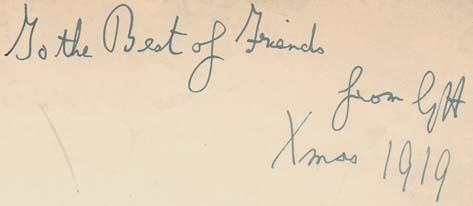 To the Best of Friends
from GH
Xmas 1919